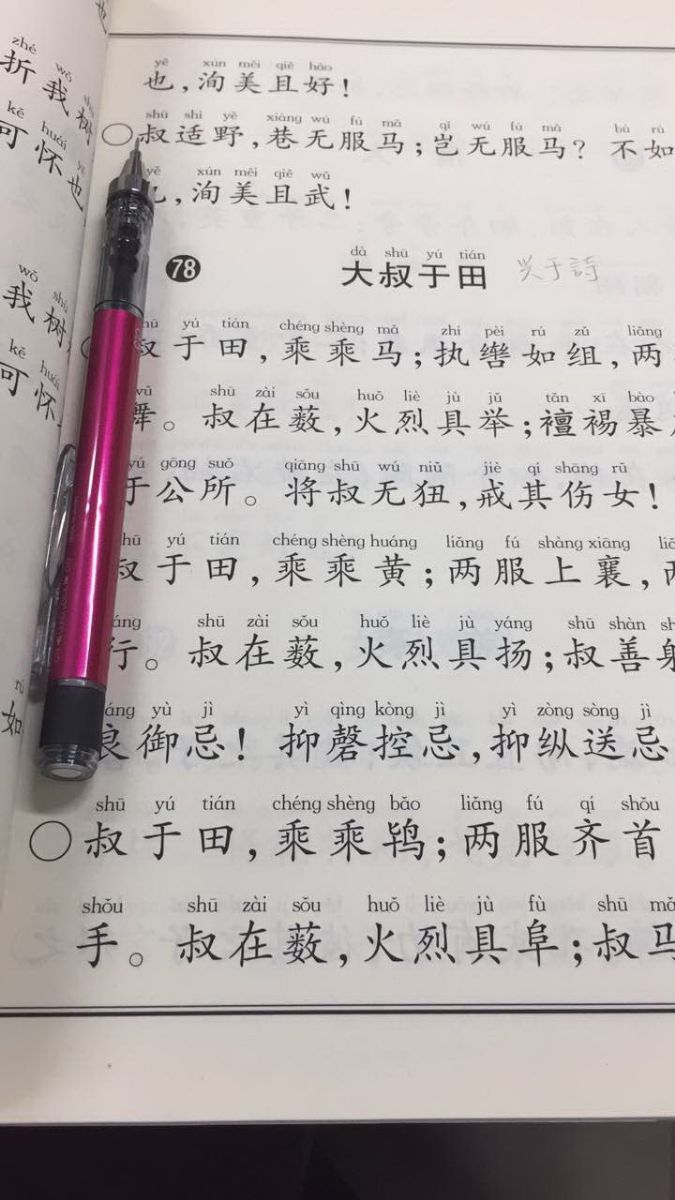 也
zhé wǒ
折我树
kě huái yě
可怀也
wǒ shù
我树
kě huái
可怀
rú
如
yě xún měi qiě hǎo
也,洵美且好!
shū shì yě xiàng wú fú mǎ qǐ wú fú mǎ bù rú
○叔适野,巷无服马;岂无服马? 不如
yě xún měi qiě wǔ
也,洵美且武!
dà shū yú tián
78 大叔于田 兴于詩
shū yú tián chéng shèng mǎ zhí pèi rú zǔ liǎng
叔于田,乘乘马;执辔如组,两
wǔ shū zài sǒu huǒ liè jù jǔ tǎn xī bào
舞。叔在薮,火烈具举;襢裼暴
yú gōng suǒ qiāng shū wú niǔ jiè qí shāng rǔ
于公所。将叔无狃,戒其伤女!
shū yú tián chéng shèng huáng liǎng fú shàng xiāng
叔于田,乘乘黄;两服上襄,两
háng shū zài sǒu huǒ liè jù yáng shū shàn
行。叔在薮,火烈具扬;叔善射
liáng yù jì yì qìng kòng jì yì zòng sòng jì
良御忌! 抑磬控忌,抑纵送忌
shū yú tián chéng shèng bǎo liǎng fú qí shǒu
○叔于田,乘乘鸨;两服齐首
shǒu shū zài sǒu huǒ liè jù fù shū mǎ
手。叔在薮,火烈具阜;叔马